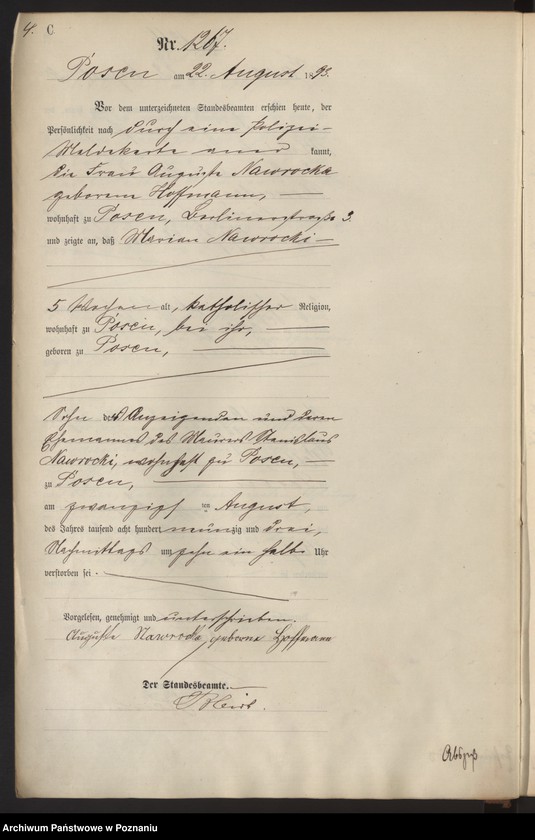 4. C
Nr. 1267.
Posen am 22. August 1893.
Vor dem unterzeichneten Standesbeamten erschien heute, der
Persönlichkeit nach durch eine Polizei-
Meldekarte aner kannt,
die Frau Auguste Nawrocka
geborene Hoffmann,
wohnhaft zu Posen, Berlinerstraße 3.
und zeigte an, daß Marian Nawrocki
5 Wochen alt, katholischer Religion,
wohnhaft zu Posen, bei ihr,
geboren zu Posen,
Sohn der Anzeigenden und deren
Ehemannes des Maurers Stanislaus
Nawrocki, wohnhaft zu Posen,
zu Posen,
am zwanzigsten August,
des Jahres tausend acht hundert neunzig und drei,
Nachmittags um zehn ein halb Uhr
verstorben sei.
Vorgelesen, genehmigt und unterschrieben.
Auguste Nawrocka, geborene Hoffmann
Der Standesbeamte.
Archiwum Państwowe w Poznaniu